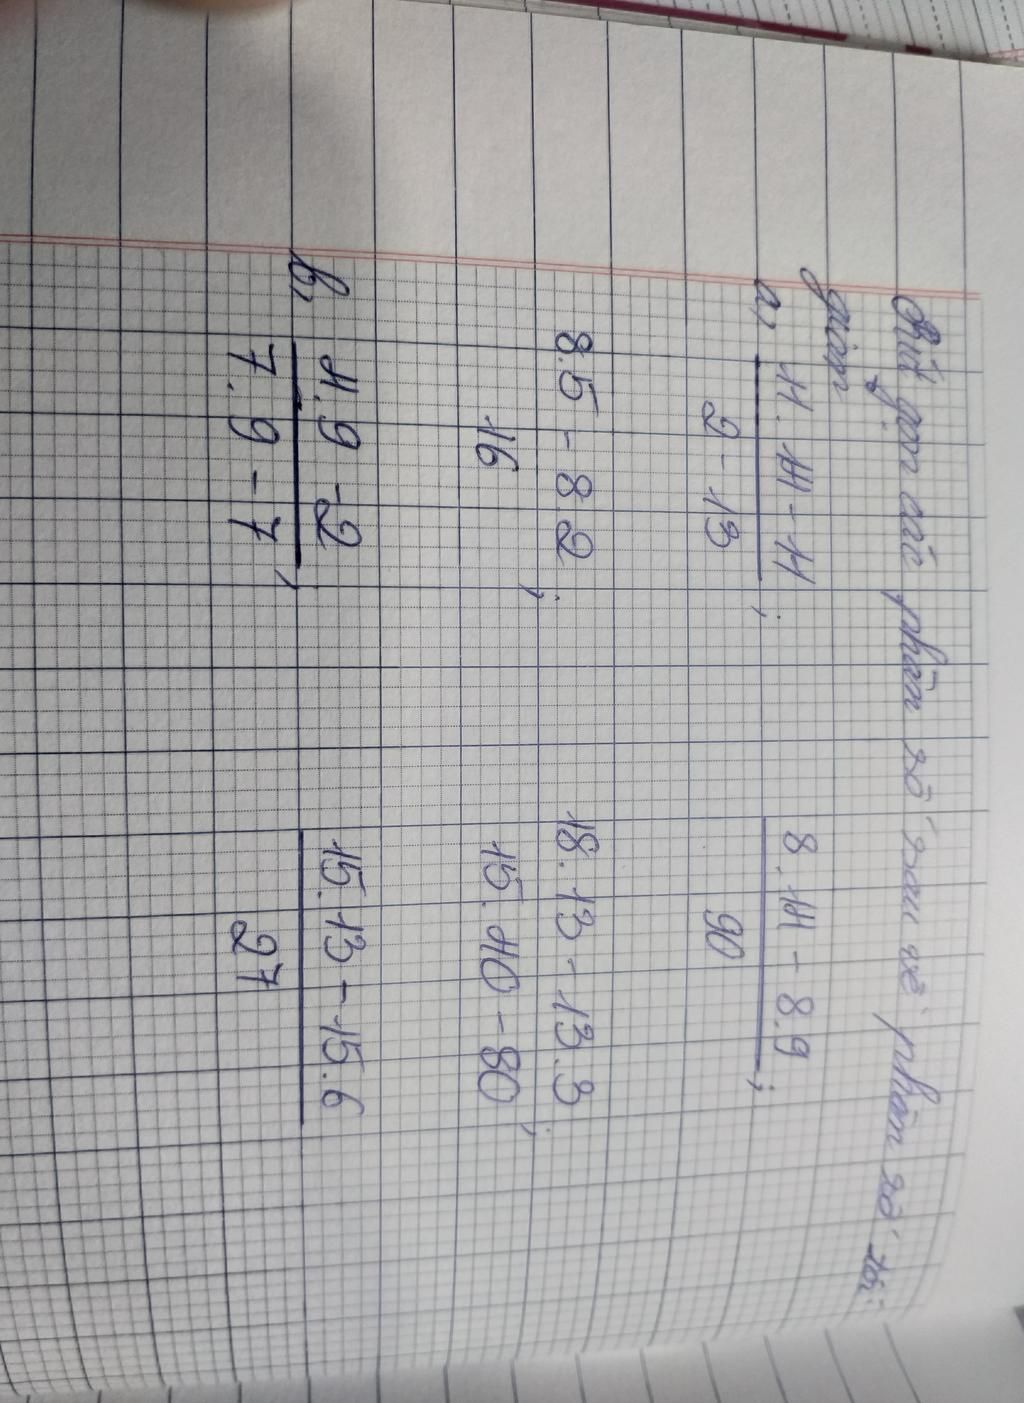 Rút gọn các phân số sau về phân số tối
giản
a, 11.14-11 ; 8.14 - 8.9 ;
2-13 90
8.5 - 8.2 ; 18.13 - 13.3 ;
16 15.40-80
b, 11.9 -2 , 15.13-15.6
7.9-7 27